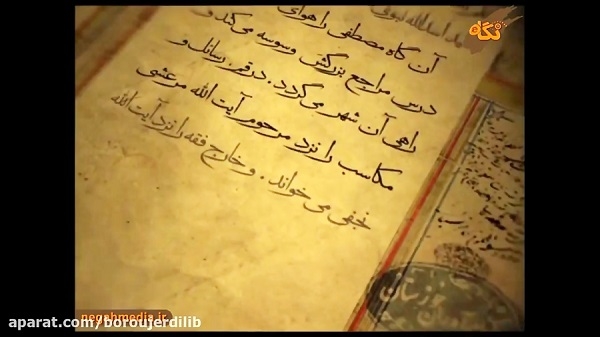 نگاه
آن گاه مصطفی را هوای
درس مراجع بزرگتر وسوسه می‌کند و
راهی آن شهر می‌گردد. در قم، رسائل و
مکاسب را نزد مرحوم آیت الله مرعشی
نجفی می خواند. و خارج فقه را نزد آیت الله
negahmedia.ir
aparat.com/boroujerdilib